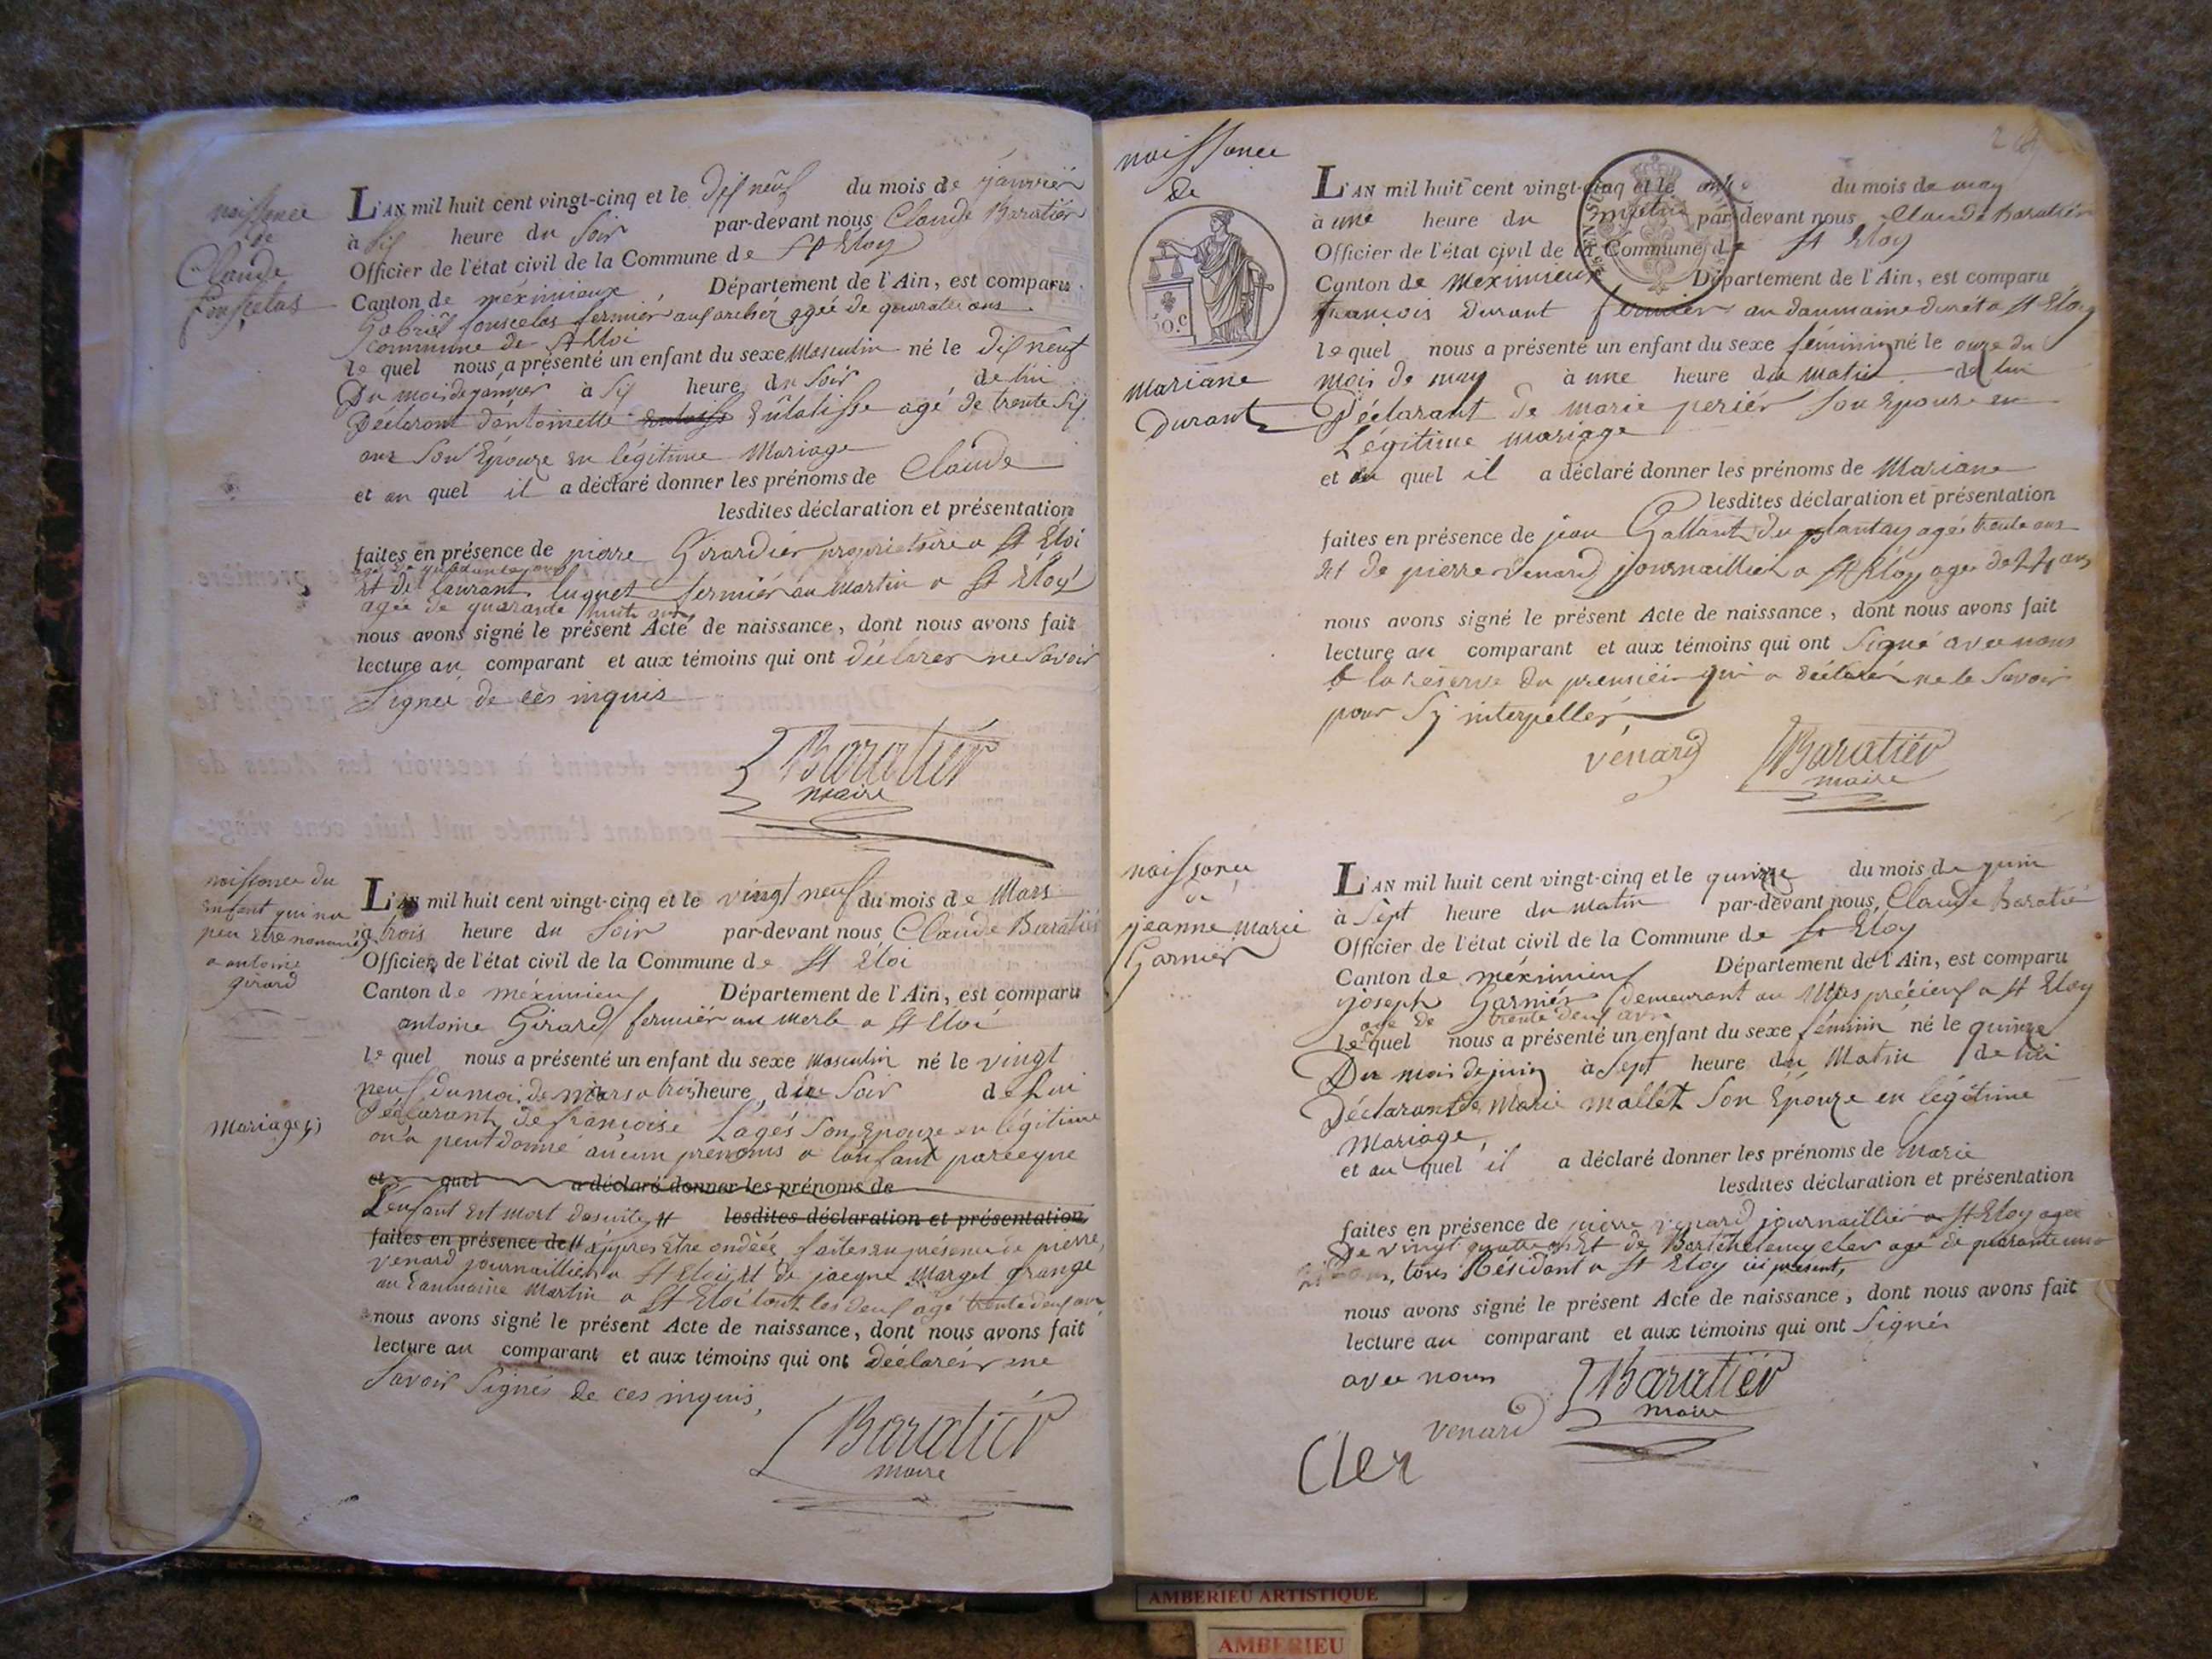 naissance
de
Claude
fonscelas
L'AN mil huit cent vingt-cinq et le dix neuf du mois de janvier
à six heure du soir par-devant nous Claude Baratier
Officier de l'état civil de la Commune de St Eloy
Canton de méximieux Département de l'Ain, est comparu
Gabriel fonscelas fermier agée de quarante ans
commune de St Eloi
le quel nous a présenté un enfant du sexe Masculin né le dix neuf
Du mois de janvier à six heure du soir de lui
Déclarant d'antoinette agé de trente six
ans son Épouze en légitime Mariage
et au quel il a déclaré donner les prénoms de Claude
lesdites déclaration et présentation
faites en présence de pierre Girardier proprietaire a St Eloi
agé de quarante ans
Et de laurant luquet fermier au Martin a St Eloy
agée de quarante huit ans
nous avons signé le présent Acte de naissance, dont nous avons fait
lecture au comparant et aux témoins qui ont déclarer ne savoir
signer de ces inquis
Baratier
maire
naissance du
enfant qui na
peu etre nommé
a antoine
girard
L'AN mil huit cent vingt-cinq et le vingt neuf du mois de Mars
à trois heure du soir par-devant nous Claude Baratier
Officier de l'état civil de la Commune de St Eloi
Canton de méximieux Département de l'Ain, est comparu
antoine Girard fermier au Merle a St Eloi
le quel nous a présenté un enfant du sexe Masculin né le vingt
neuf du moi de mars a trois heure du soir de lui
Déclarant de francoise Lagés son Epouze en légitime
Mariage
on'a peut donné aucun prenoms a l'enfant parceque
et quel a déclaré donner les prénoms de
L'enfant Est mort desuite lesdites déclaration et présentation
faites en présence de appres être ondéée faites en présence de pierre
venard journaillier a St Eloi Et de jacque Marget grange
au Daumaine Martin a St Eloi tout les deux agé trente deux ans
nous avons signé le présent Acte de naissance, dont nous avons fait
lecture au comparant et aux témoins qui ont déclarér ne
savoir signés de ces inquis,
Baratier
maire
naissance
de
50.C
mariane
Durant
L'AN mil huit cent vingt-cinq et le onze du mois de may
à une heure du matin par-devant nous Claude Baratier
Officier de l'état civil de la Commune de St Eloy
Canton de Méximieux Département de l'Ain, est comparu
françois Durant fermier au daumaine a St Eloy
le quel nous a présenté un enfant du sexe féminin né le onze du
mois de may à une heure du matin de lui
Déclarant de marie periér son Epouze en
Légitime mariage
et au quel il a déclaré donner les prénoms de Mariane
lesdites déclaration et présentation
faites en présence de jean Gallant du plantay agée trente ans
Et de pierre venard journaillier a St Eloy agée de 24 ans
nous avons signé le présent Acte de naissance, dont nous avons fait
lecture au comparant et aux témoins qui ont signé avec nous
a la réserve du premiér qui a déclarér ne le savoir
pour sy interpellér
vénard Baratier
maire
naissance
de
jeanne Marie
Garnier
L'AN mil huit cent vingt-cinq et le quinze du mois de juin
à Sept heure du matin par-devant nous Claude Baratié
Officier de l'état civil de la Commune de St Eloy
Canton de méximieux Département de l'Ain, est comparu
joseph Garniér demeurant au a St Eloy
age de trente deux ans
le quel nous a présenté un enfant du sexe féminin né le quinze
Du mois de juin à Sept heure du Matin de lui
Déclarant de Marie mallet son Épouze en légitime
Mariage
et au quel il a déclaré donner les prénoms de Marie
lesdites déclaration et présentation
faites en présence de pierre venard journaillier a St Eloy agee
De vingt quatre ans Et de Barthelemy cler agé de quarante un
ans, tous Résidant a St Eloy ici présent,
nous avons signé le présent Acte de naissance, dont nous avons fait
lecture au comparant et aux témoins qui ont signés
avec nous
Baratier
maire
venard
Cler
AMBERIEU ARTISTIQUE
AMBERIEU